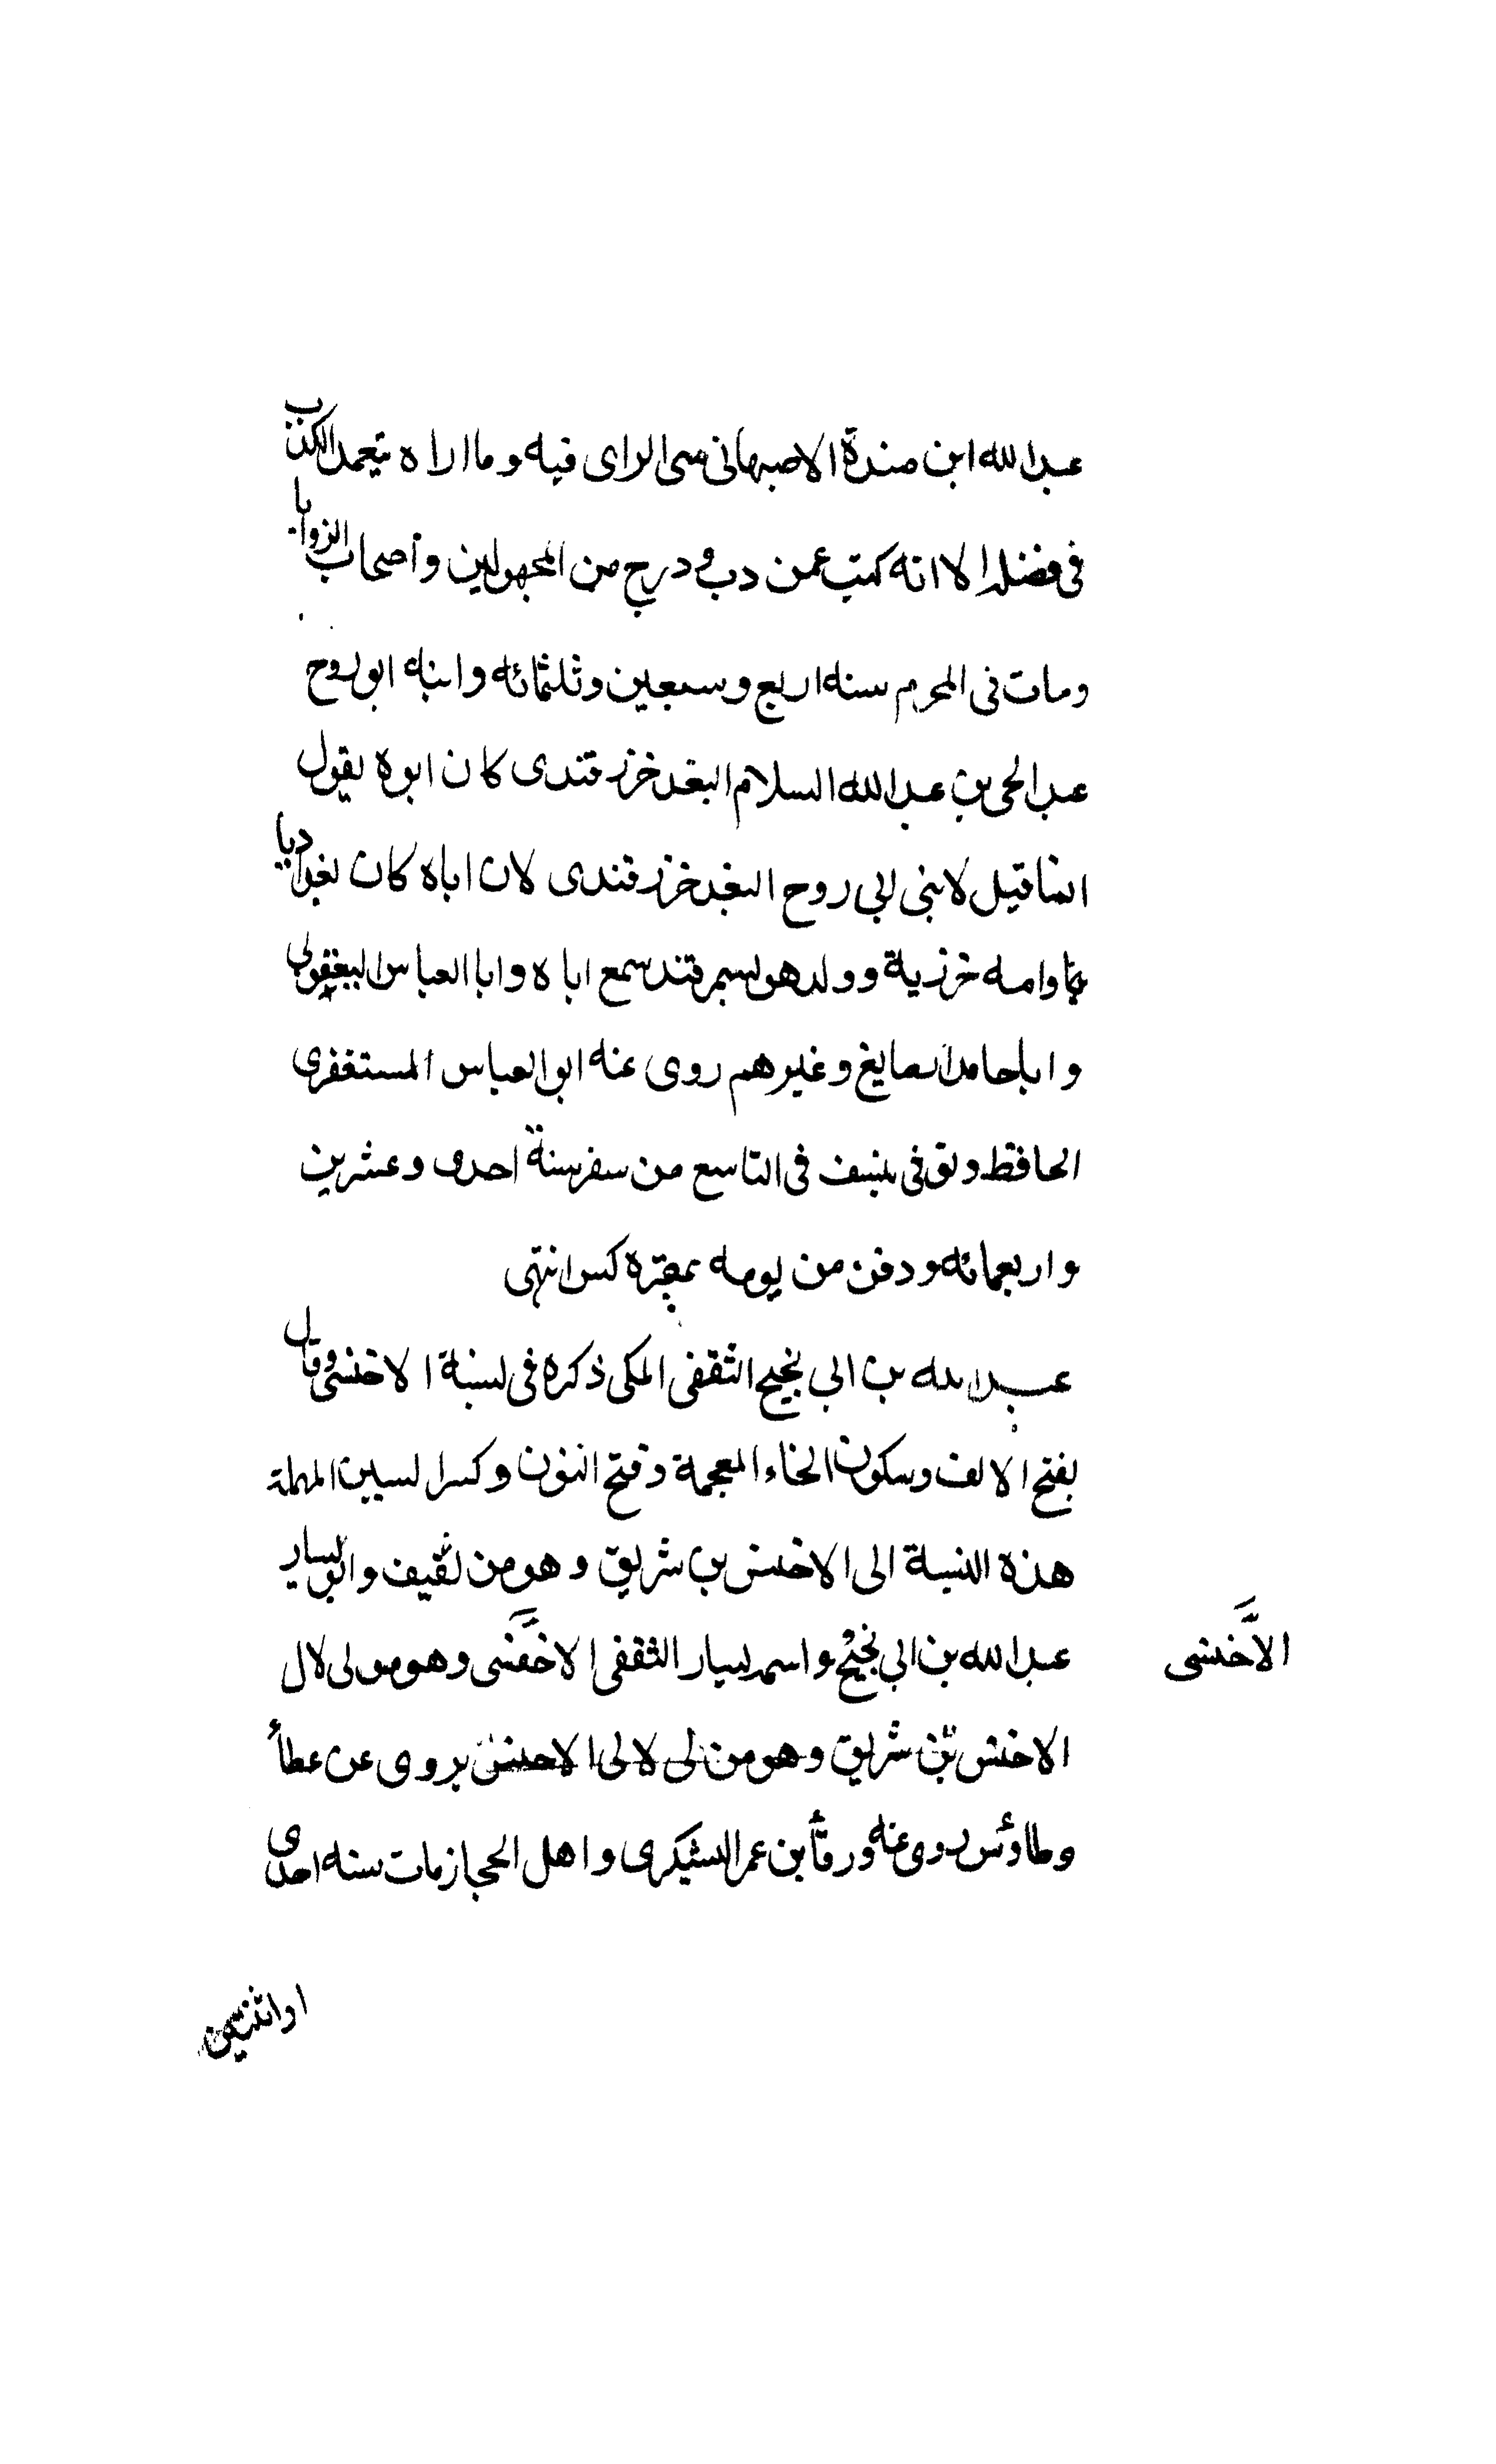 عبدالله ابن مندة الاصبهانى سى الراى فيه وما اراه يتعمد الكذب
فى فضله الا انه كتب عمن دب ودرج من المجهولين وأصحاب الزوايا
ومات فى المحرم سنه اربع وسبعين وثلثمائه وابنه ابو روح
عبد الحى بن عبدالله السلام البغدخزرقندى كان ابوه يقول
انما قيل لابنى ابى روح البغدخزرقندى لان اباه كان بغداديا
وامه خرزية وولد هو بسمرقند سمع اباه وابا العباس
وابا حامد الصايغ وغيرهم روى عنه ابو العباس المستغفرى
الحافظ وتوفى بنسف فى التاسع من سفر سنة احدى وعشرين
واربعمائه ودفن من يومه بمقبره كس انتهى
عبدالله بن ابى نجيح الثقفى المكى ذكره فى نسبة الاخنسى وقال
بفتح الالف وسكون الخاء المعجمة وفتح النون وكسر السين المهملة
هذه النسبة الى الاخنس بن شريق وهو من ثقيف وابو يسار
الاخنسى
عبدالله بن ابى نجيح واسمه يسار الثقفى الاخنسى وهو مولى لال
الاخنس بن شريق وهو من لى لالى الاحنس يروى عن عطأ
وطاؤس روى عنه ورقأ بن عمر اليشكرى واهل الحجاز مات سنه احدى
او اثنتين